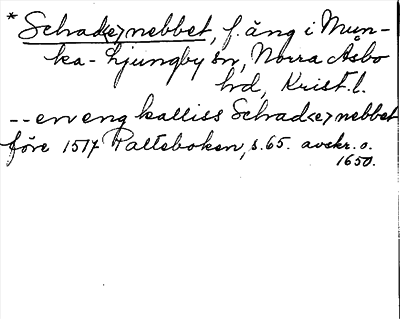 * Schrad<e>nebbet, f. äng i Mun-
ka-Ljungby sn, Norra Åsbo
hd, Krist. l.
-- en eng kalliss Schrad<e>nebbet
före 1517 Palteboken, s. 65. avskr. o.
1650.